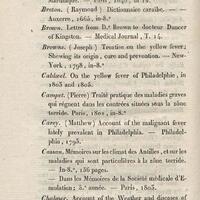 Breton. (Raymond) Dictionnaire caraïbe. —
Auxerre, 1665, in-8.°
Brown. Letter from D.r Brown to docteur Dancer
of Kingston. — Medical Journal, T. 14.
Browne. (Joseph) Treatise on the yellow fever;
Shewing its origin, cure and prevention. — New-
York, 1798, in-8.°
Cathisel. On the yellow fever of Philadelphie, in
1803 and 1805.
Campet. (Pierre) Traité pratique des maladies graves
qui règnent dans les contrées situées sous la zône
torride. Paris, 1802, in-8.°
Carey. (Matthew) Account of the malignant fever
lately prevalent in Philadelphia. — Philadel-
phia, 1793.
Cassan. Mémoires sur les climat des Antilles, et sur les
maladies qui sont particulières à la zône torride.
— In-8.°, 136 pages.
Dans les Mémoires de la Société médicale d'E-
mulation; 5.e année. — Paris, 1803.
Chalmer. Account of the Weather and diseases of